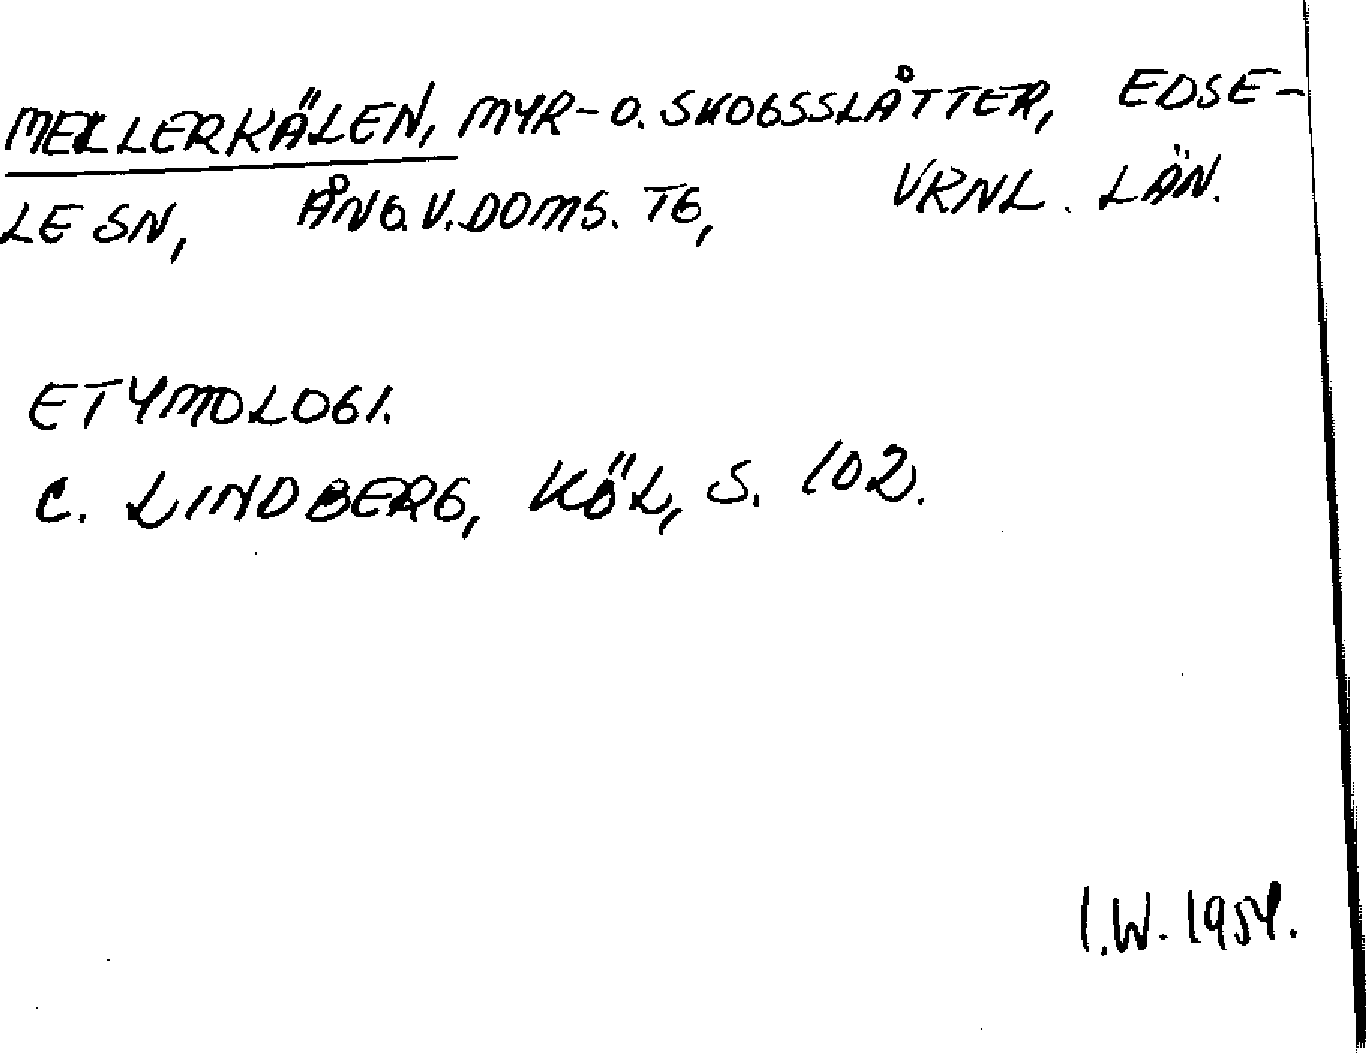 MELLERKÄLEN, MYR- O. SKOGSSLÅTTER, EDSE-
LE SN, ÅNG.V.DOMS. TG, VRNL. LÄN.
ETYMOLOGI.
C. LINDBERG, KÖL, S. 102.
I.W. 1954.